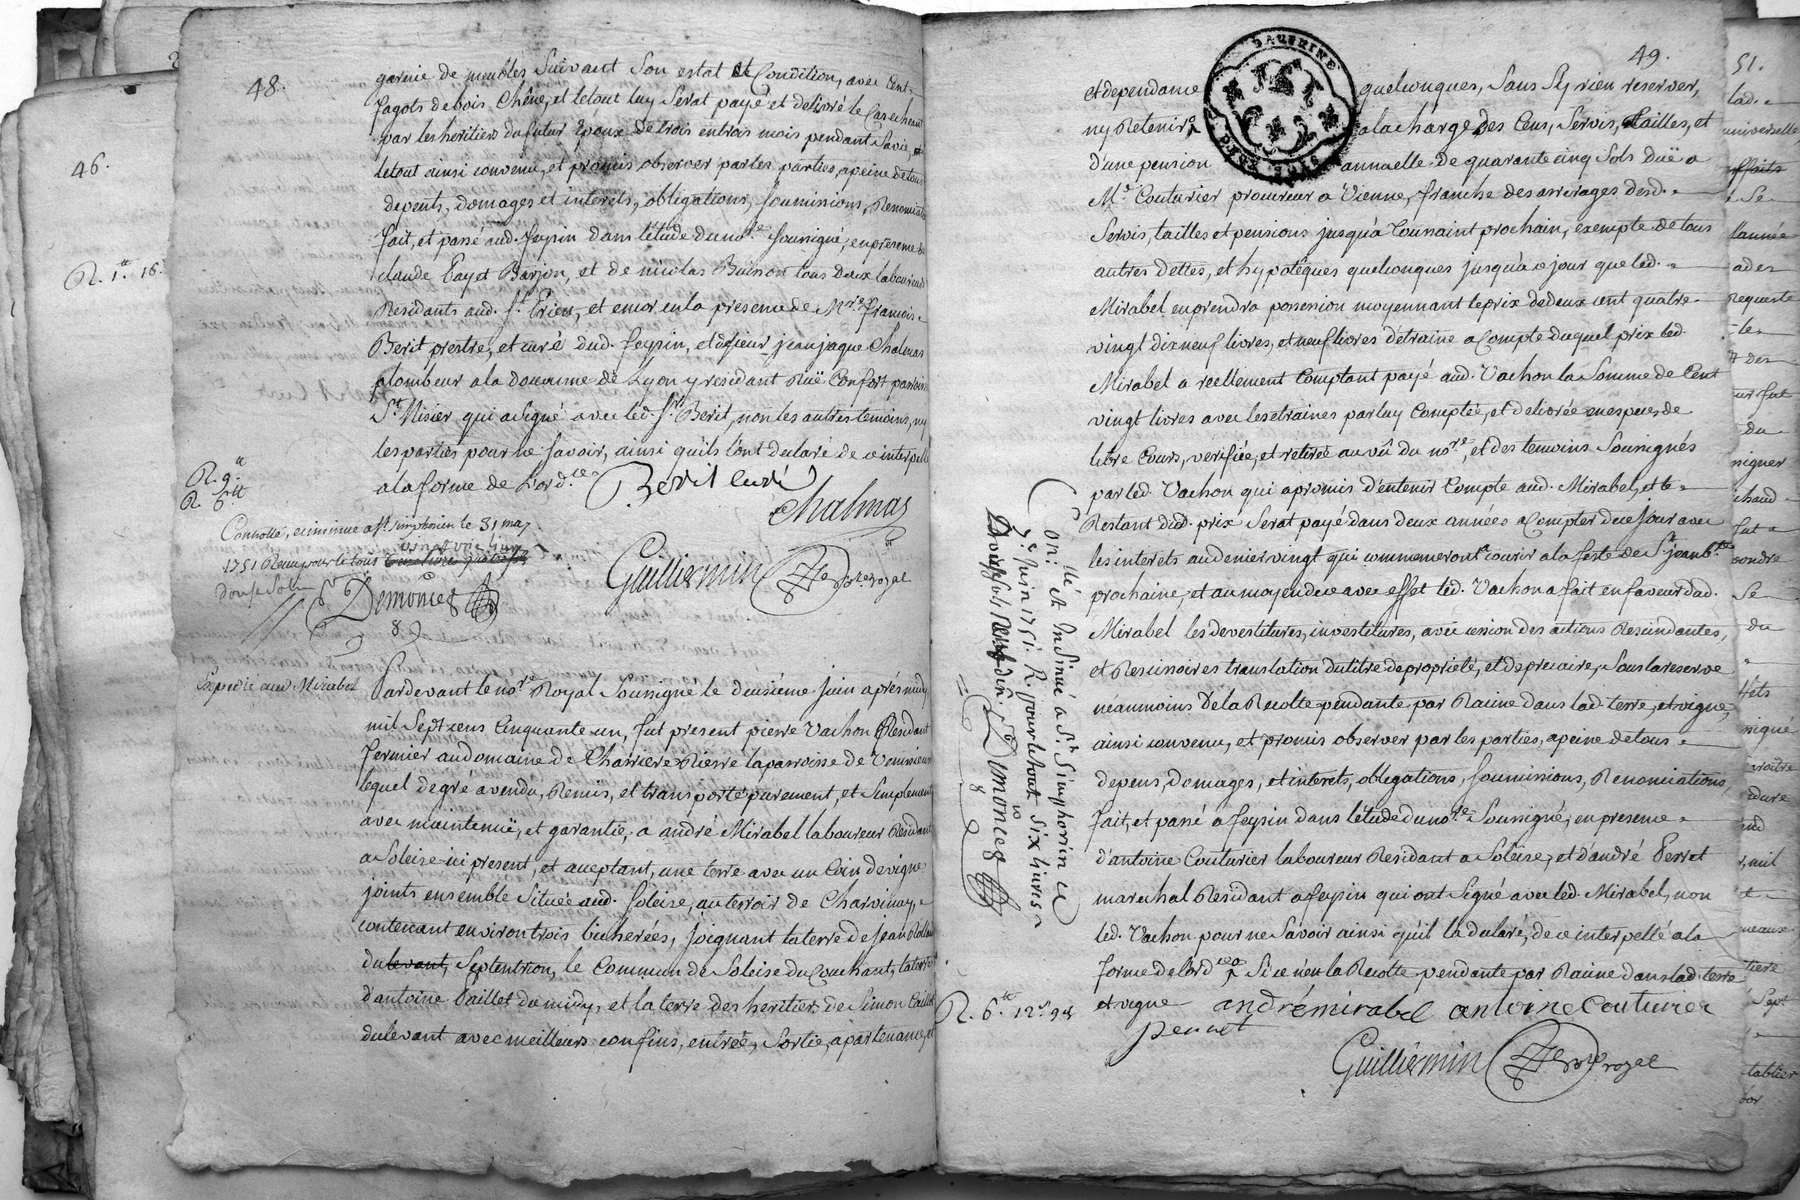 46.
R. 1.# 16.s
48.
garnie de meubles Suivant Son estat et Condition, avec Cent
fagots de bois Chêne, et le tout luy Serat payé et delivré le Cas echeant
par les heritiers du futur Epoux de trois en trois mois pendant Sa vie,
le tout ainsi convenu, et promis observer par les parties, a peine de tous
depents, domages et interets, obligations, soumissions, Renonciat
fait, et passé aud. feysin dans l'étude du no.re soussigné, en presence de
claude Bayet Barjon, et de nicolas Buisson tous deux laboureurs
Residants aud. St. Priest, et encor en la presence de M.re francois
Berit prestre, et curé dud. feysin, et de sieur jean jaque Chalmas
plombeur a la doüanne de Lyon y residant Rüe Confort paroisse
St. Nisier qui a Signé avec led. Sr. Berit, non les autres temoins, ny
les parties pour ne savoir, ainsi qu'ils l'ont declaré de ce interpellé
a la forme de L'ord.ce
R. 9.#
R. 6.#
Berit curé
Chalmas
Controllé, et insinué a St. simphorien le 31 may
1751 Reçu pour le tout
Douse Sols
Demoncez
Guilliermin
no.re royal
Expedié aud Mirabel
Pardevant le no.re Royal Soussigné le deuxième juin après midy
mil Sept cens Cinquante un, fut present pierre Vachon Residant
fermier au domaine de Charriere Pierre la parroisse de Venissieux
lequel de gré a vendu, Remis, et transporté purement, et Simplement
avec maintenuë, et garantie, a andré Mirabel laboureur Residant
a Soleise ici present, et acceptant, une terre avec un Coin de vigne
joints ensemble Située aud. Soleise, au terroir de Charvinay,
contenant environ trois bicherées, joignant la terre de jean Rolland
du levant, Septentrion, le Commun de Soleise du Couchant, la terre
d'antoine Paillet du midy, et la terre des heritiers de Simon Paillet
du levant avec meilleurs confins, entrée, Sortie, apartenance, et
49.
DAUPHINE
et dependance quelconques, Sans Sy rien reserver,
ny Retenir, a la charge des Cens, Servis, tailles, et
d'une pension annuelle de quarante cinq Sols duë a
M.e Couturier procureur a Vienne, franche des arrerages desd.
Servis, tailles et pensions jusqu'à Toussaint prochain, exempte de tous
autres dettes, et hypotêques quelconques jusqu'a ce jour que led.
Mirabel en prendra possession moyennant le prix de deux cent quatre
vingt dix neuf livres, et neuf livres d'etraine a Compte duquel prix led.
Mirabel a reellement Comptant payé aud. Vachon la Somme de Cent
vingt livres avec les etraines par luy Comptée, et delivrée en especes de
libre Cours, verifiée, et retirée au vû du no.re, et des temoins Soussignés
par led. Vachon qui a promis d'en tenir Compte aud. Mirabel, et le
Restant dud. prix Serat payé dans deux années a Compter de ce jour avec
les interets au denier vingt qui commenceront a courir a la feste de St. jean b.te
prochaine, et au moyen de ce avec effet led. Vachon a fait en faveur dud.
Mirabel les devestitures, investitures, avec cession des actions Rescindantes,
et Rescisoires translation du titre de proprieté, et de precaire, Sous la reserve
néanmoins de la Recolte pendante par Racine dans lad. terre, et vigne,
ainsi convenu, et promis observer par les parties, a peine de tous
depens, domages, et interets, obligations, soumissions, Renonciations,
fait, et passé a feysin dans l'étude du no.re Soussigné, en presence
d'antoine Couturier laboureur Residant a Soleise, et d'andré Perret
marechal Residant a feysin qui ont Signé avec led. Mirabel, non
led. Vachon pour ne Savoir ainsi qu'il l'a declaré, de ce interpellé a la
forme de l'ord.ce Si ce n'en la Recolte pendante par Racine dans lad. terre
et vigne
andré mirabel
antoine Couturier
perret
Guilliermin
no.re royal
Con.llé et Insinué a St. Simphorien ce
7.e Juin 1751. R. pour le tout six livres
Douse sols
Demoncez
R. 6.# 12.s 9.d
51.